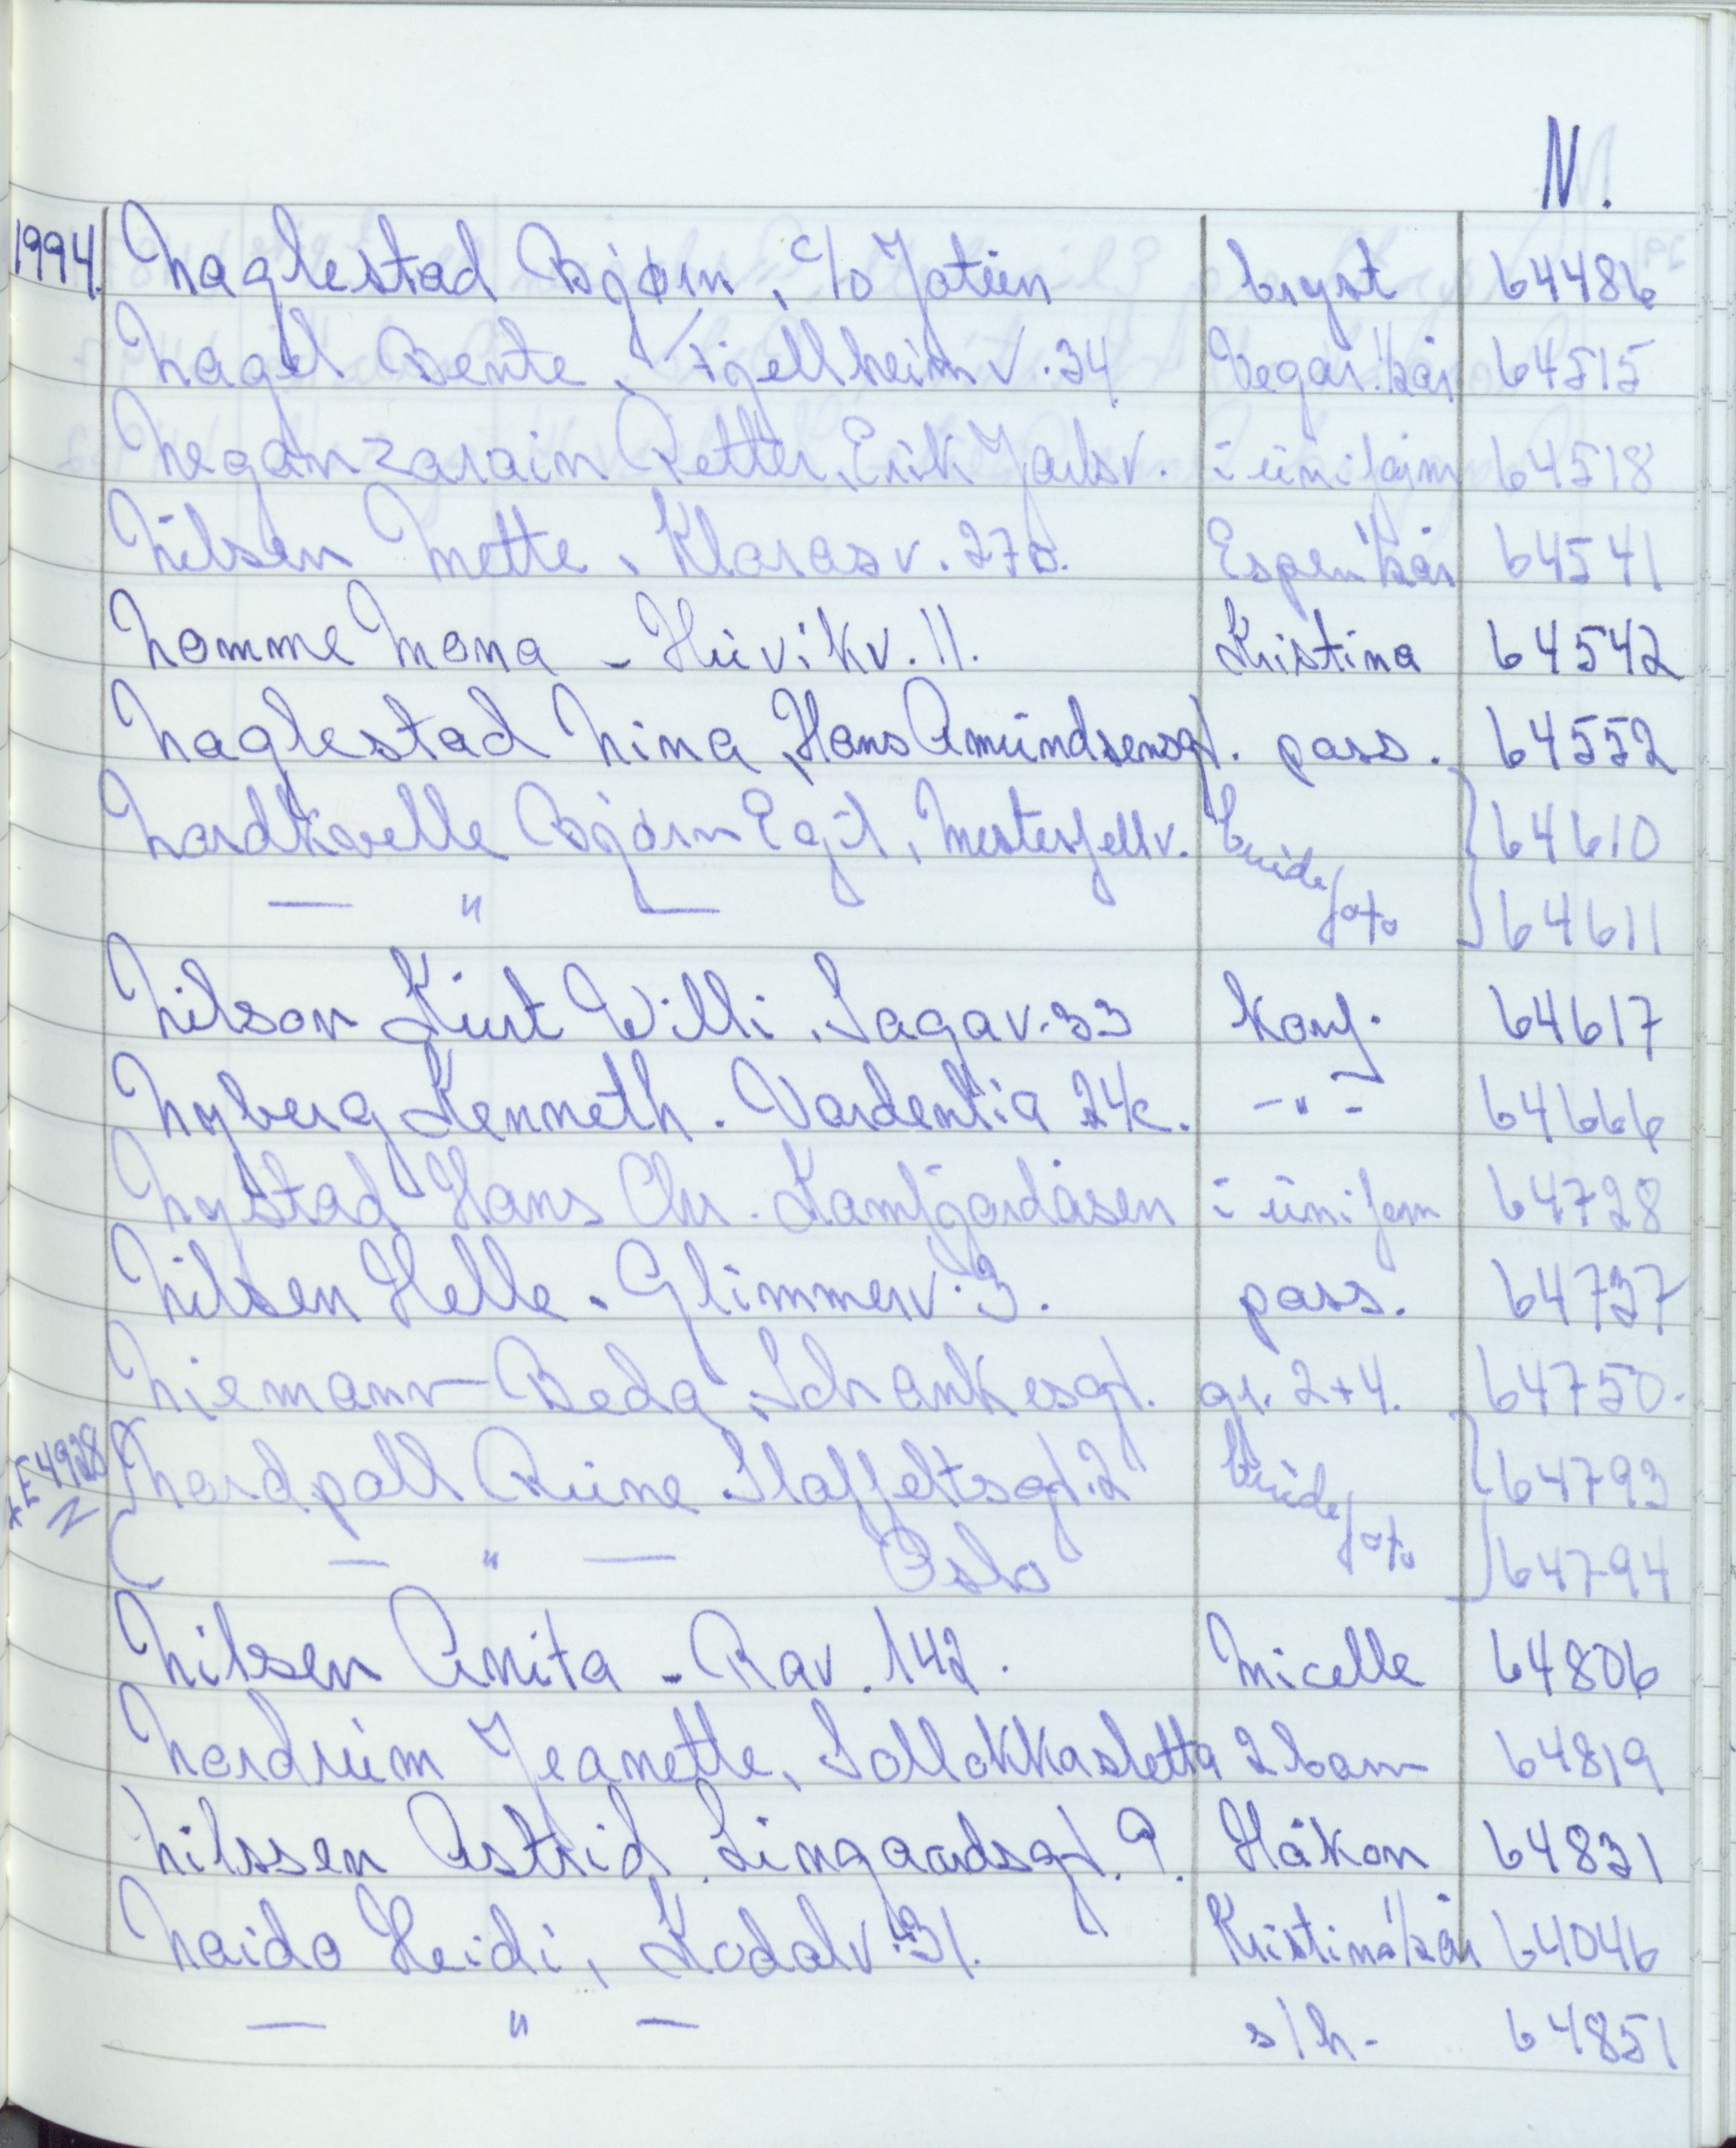 N.
1994. Naglestad Bjørn, c/o Jotun bryst 64486
Nagel Bente, Fjellheimv. 34 Vegar 1/2 år 64515
Neganzarain Petter, Erik Jarlsv. i uniform 64518
Nilsen Mette, Klaras v. 27b. Espen 1/2 år 64541
Nomme Mona - Huvikv. 11. Kristina 64542
Naglestad Nina, Hans Amundsensgt. pass. 64552
Nordkvelle Bjørn Egil, Mesterfjellv. brude/ 64610
— " — foto 64611
Nilson Kurt Willi, Sagav. 33 konf. 64617
Nyberg Kenneth. Vardenlia 24c. - " - 64666
Nystad Hans Chr. Kamfjordåsen i uniform 64728
Nilsen Helle. Glimmerv. 3. pass. 64737
Niemann Beda, Schankesgt. gr. 2+4. 64750.
*E4928 N Nordpoll Rune Staffeltsgt. 2 brude/ 64793
— " — Oslo foto 64794
Nilsen Anita - Rav. 142. Micelle 64806
Nordrum Jeanette, Solløkkasletta 2 barn 64819
Nilssen Astrid. Lingaardsgt. 9. Håkon 64831
Naido Heidi, Kodalv. 31. Kristina 1/2 år 64046
— " — s/h- 64851